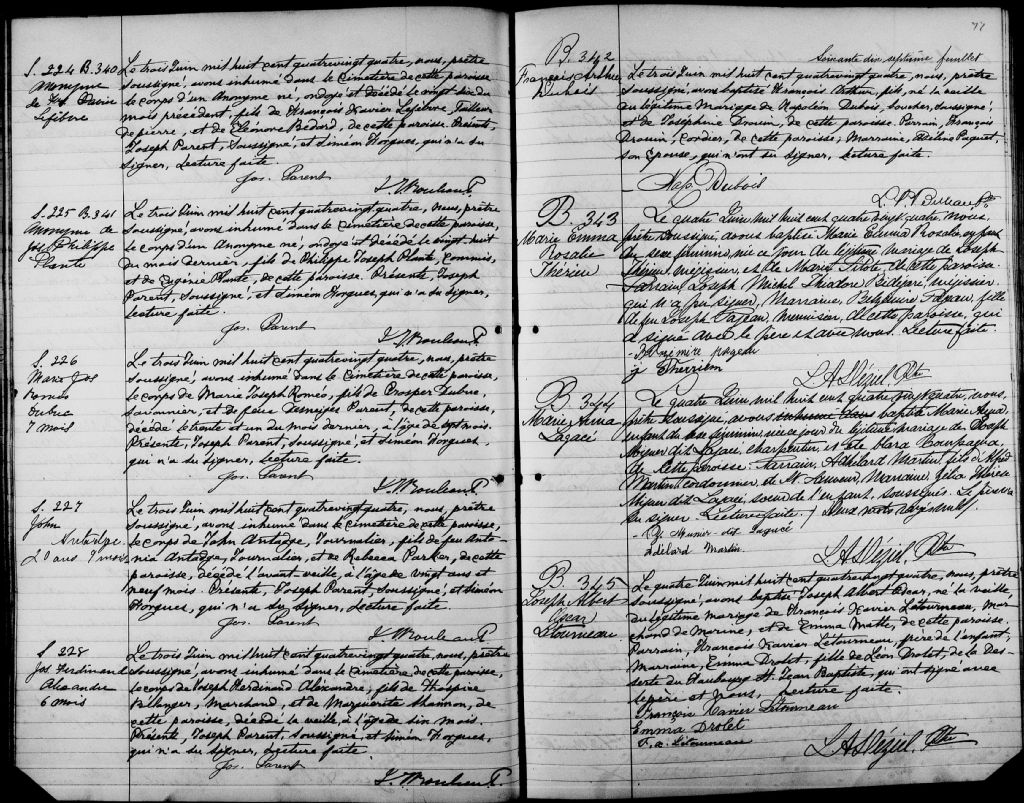 S. 224 B. 340
Anonyme
Lefebvre
Le trois Juin mil huit cent quatrevingt quatre, nous, prêtre
soussigné, avons inhumé dans le cimetière de cette paroisse
le corps d'un Anonyme né, ondoyé et décédé le vingt six du
mois précédent, fils de François Xavier Lefebvre, Tailleur
de pierre, et de Eléonore Bédard, de cette paroisse. Présents,
Joseph Parent, soussigné, et Siméon Horgues, qui n'a su
signer, Lecture faite.
Jos. Parent
S. 225 B. 341
Anonyme de
Jos. Philippe
Plante
Le trois Juin mil huit cent quatrevingt quatre, nous, prêtre
soussigné, avons inhumé dans le cimetière de cette paroisse,
le corps d'un Anonyme né, ondoyé et décédé le vingt huit
du mois dernier, fils de Philippe Joseph Plante, Commis,
et de Eugénie Plante, de cette paroisse. Présents, Joseph
Parent, soussigné, et Siméon Horgues, qui n'a su signer,
Lecture faite.
Jos. Parent
S. 226
Marie Jos
Roméo
Dubuc
7 mois
Le trois Juin mil huit cent quatrevingt quatre, nous, prêtre
soussigné, avons inhumé dans le cimetière de cette paroisse,
le corps de Marie Joseph Roméo, fils de Prosper Dubuc,
savonnier, et de feue Desneiges Parent, de cette paroisse,
décédé le trente et un du mois dernier, à l'âge de sept mois.
Présents, Joseph Parent, soussigné, et Siméon Horgues,
qui n'a su signer, Lecture faite.
Jos. Parent
S. 227
John
20 ans 9 mois
Le trois Juin mil huit cent quatrevingt quatre, nous, prêtre
soussigné, avons inhumé dans le cimetière de cette paroisse,
le corps de John Journalier, fils de feu
Journalier, et de Rebecca Parker, de cette
paroisse, décédé l'avant veille, à l'âge de vingt ans et
neuf mois. Présents, Joseph Parent, soussigné, et Siméon
Horgues, qui n'a su signer, Lecture faite.
Jos. Parent
S. 228
Jos. Ferdinand
Alexandre
6 mois
Le trois Juin mil huit cent quatrevingt quatre, nous, prêtre
soussigné, avons inhumé dans le cimetière de cette paroisse,
le corps de Joseph Ferdinand Alexandre, fils de
Bélanger, Marchand, et de Marguerite Shannon, de
cette paroisse, décédé la veille, à l'âge de six mois.
Présents, Joseph Parent, soussigné, et Siméon Horgues,
qui n'a su signer, Lecture faite.
Jos. Parent
77
Soixante dix septième feuillet
B. 342
François Arthur
Dubois
Le trois Juin mil huit cent quatrevingt quatre, nous, prêtre
soussigné, avons baptisé François Arthur, fils, né la veille
du légitime mariage de Napoléon Dubois, boucher, soussigné,
et de Joséphine Drouin, de cette paroisse. Parrain, François
Drouin, cordier, de cette paroisse, Marraine, Paquet,
son épouse, qui n'ont su signer, Lecture faite.
Nap Dubois
B. 343
Marie Emma
Rosalie
Therien
Le quatre Juin mil huit cent quatre vingt quatre, nous,
prêtre soussigné, avons baptisé Marie Emma Rosalie,
du sexe féminin, née ce jour du légitime mariage de Joseph
Therien, mégissier, et de Marie de cette paroisse.
Parrain, Joseph Michel Théodore mégissier
qui n'a pu signer, Marraine, fille
de feu Joseph menuisier, de cette paroisse, qui
a signé avec le père et avec nous. Lecture faite
J Therrien
B. 344
Marie Anna
Lagacé
Le quatre Juin mil huit cent quatre vingt quatre, nous,
prêtre soussigné, avons baptisé Marie Anna
enfant du sexe féminin née ce jour du légitime mariage de Joseph
Mignier dit Lagacé, charpentier, et de Clara
de cette paroisse. Parrain, Adélard Martin, fils d'Alfred
Martin, cordonnier, de St. Sauveur, Marraine,
Mignier dit Lagacé, soeur de l'enfant, soussignés. Le père n'a
su signer. Lecture faite.
Adélard Martin
B. 345
Joseph Albert
Létourneau
Le quatre Juin mil huit cent quatrevingt quatre, nous, prêtre
soussigné, avons baptisé Joseph Albert né la veille,
du légitime mariage de François Xavier Létourneau, Mar
chand de Marine, et de Emma Matte, de cette paroisse.
Parrain, François Xavier Létourneau, frère de l'enfant,
Marraine, Emma Drolet, fille de Léon Drolet, de la Des-
serte du Faubourg St. Jean Baptiste, qui ont signé avec
le père et nous, Lecture faite.
François Xavier Létourneau
Emma Drolet
F. X. Létourneau